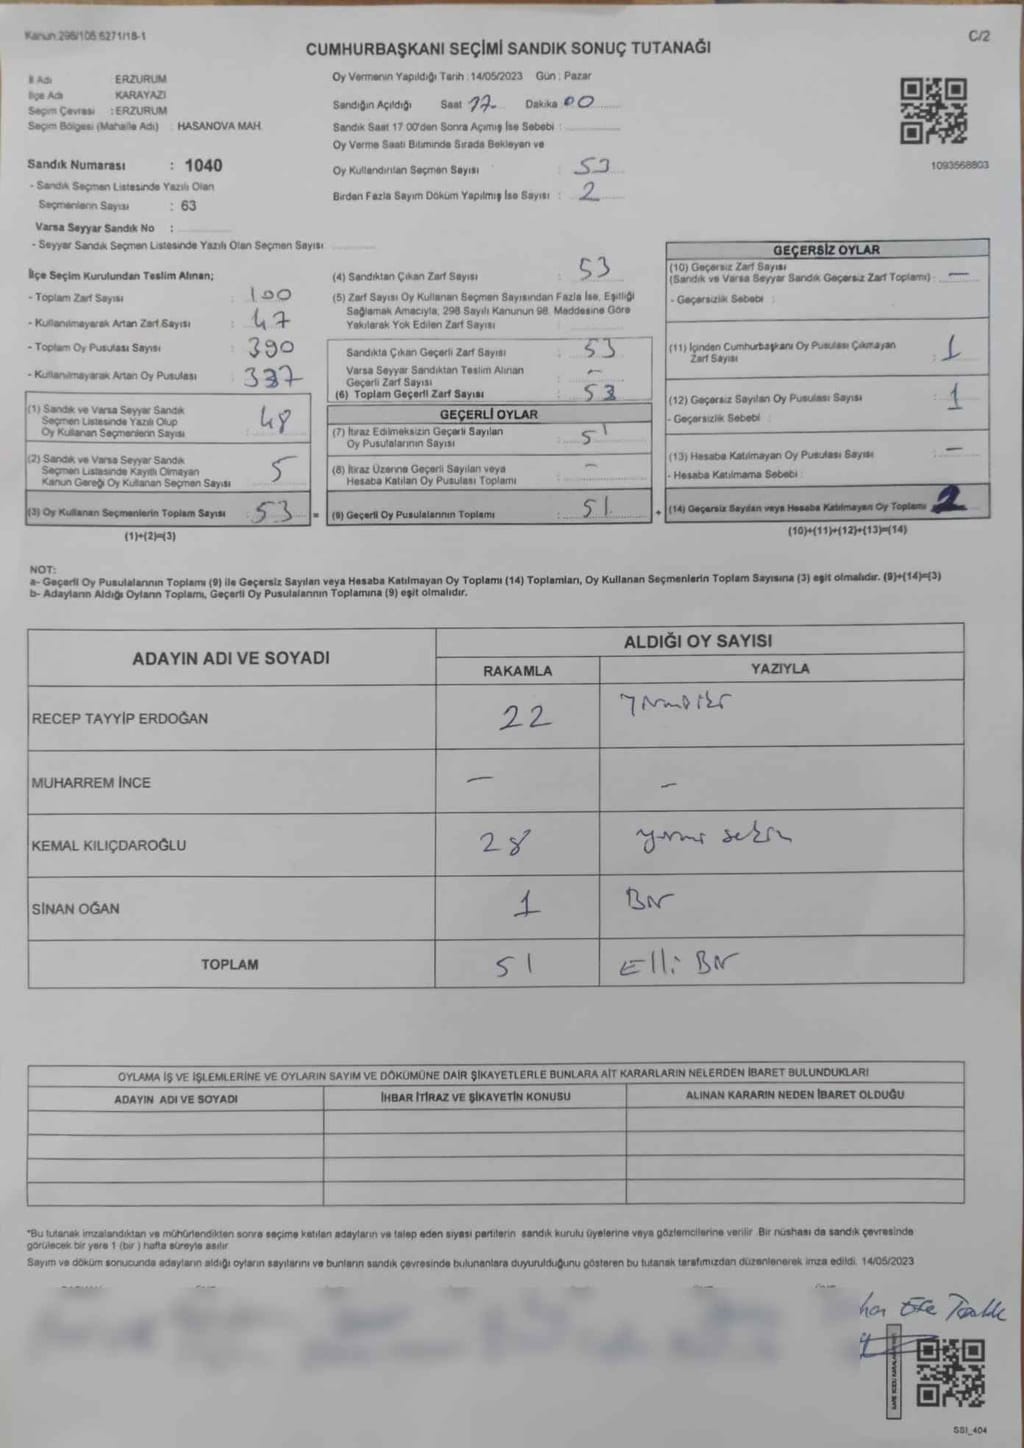 Kanun:298/105.6271/18-1
C/2
CUMHURBAŞKANI SEÇİMİ SANDIK SONUÇ TUTANAĞI
İl Adı ERZURUM
İlçe Adı KARAYAZI
Seçim Çevresi : ERZURUM
Seçim Bölgesi (Mahalle Adı) : HASANOVA MAH.
Sandık Numarası : 1040
- Sandık Seçmen Listesinde Yazılı Olan
Seçmenlerin Sayısı : 63
Varsa Seyyar Sandık No :
- Seyyar Sandık Seçmen Listesinde Yazılı Olan Seçmen Sayısı
Oy Vermenin Yapıldığı Tarih : 14/05/2023 Gün : Pazar
Sandığın Açıldığı Saat 17 Dakika 00
Sandık Saat 17 00'den Sonra Açımış İse Sebebi :
Oy Verme Saati Bitiminde Sırada Bekleyen ve
Oy Kullandırılan Seçmen Sayısı : 53
Birden Fazla Sayım Döküm Yapılmış İse Sayısı : 2
1093568803
İlçe Seçim Kurulundan Teslim Alınan;
- Toplam Zarf Sayısı : 100
- Kullanılmayarak Artan Zarf Sayısı : 47
- Toplam Oy Pusulası Sayısı : 390
- Kullanılmayarak Artan Oy Pusulası : 337
(1) Sandık ve Varsa Seyyar Sandık
Seçmen Listesinde Yazılı Olup
Oy Kullanan Seçmenlerin Sayısı : 48
(2) Sandık ve Varsa Seyyar Sandık
Seçmen Listesinde Kayıtlı Olmayan
Kanun Gereği Oy Kullanan Seçmen Sayısı 5
(3) Oy Kullanan Seçmenlerin Toplam Sayısı : 53 =
(1)+(2)=(3)
(4) Sandıktan Çıkan Zarf Sayısı : 53
(5) Zarf Sayısı Oy Kullanan Seçmen Sayısından Fazla İse, Eşitliği
Sağlamak Amacıyla, 298 Sayılı Kanunun 98. Maddesine Göre
Yakılarak Yok Edilen Zarf Sayısı
Sandıkta Çıkan Geçerli Zarf Sayısı : 53
Varsa Seyyar Sandıktan Teslim Alınan
Geçerli Zarf Sayısı : -
(6) Toplam Geçerli Zarf Sayısı : 53
GEÇERLİ OYLAR
(7) İtiraz Edilmeksizin Geçerli Sayılan
Oy Pusulalarının Sayısı : 51
(8) İtiraz Üzerine Geçerli Sayılan veya
Hesaba Katılan Oy Pusulası Toplamı : -
(9) Geçerli Oy Pusulalarının Toplamı : 51 +
GEÇERSİZ OYLAR
(10) Geçersiz Zarf Sayısı
(Sandık ve Varsa Seyyar Sandık Geçersiz Zarf Toplamı) : -
- Geçersizlik Sebebi :
(11) İçinden Cumhurbaşkanı Oy Pusulası Çıkmayan
Zarf Sayısı : 1
(12) Geçersiz Sayılan Oy Pusulası Sayısı : 1
- Geçersizlik Sebebi
(13) Hesaba Katılmayan Oy Pusulası Sayısı : -
- Hesaba Katılmama Sebebi :
(14) Geçersiz Sayılan veya Hesaba Katılmayan Oy Toplamı 2
(10)+(11)+(12)+(13)=(14)
NOT:
a- Geçerli Oy Pusulalarının Toplamı (9) ile Geçersiz Sayılan veya Hesaba Katılmayan Oy Toplamı (14) Toplamları, Oy Kullanan Seçmenlerin Toplam Sayısına (3) eşit olmalıdır. (9)+(14)=(3)
b- Adayların Aldığı Oyların Toplamı, Geçerli Oy Pusulalarının Toplamına (9) eşit olmalıdır.
ADAYIN ADI VE SOYADI
ALDIĞI OY SAYISI
RAKAMLA YAZIYLA
RECEP TAYYİP ERDOĞAN 22 Yirmi iki
MUHARREM İNCE - -
KEMAL KILIÇDAROĞLU 28 yirmi sekiz
SİNAN OĞAN 1 Bir
TOPLAM 51 Elli Bir
OYLAMA İŞ VE İŞLEMLERİNE VE OYLARIN SAYIM VE DÖKÜMÜNE DAİR ŞİKAYETLERLE BUNLARA AİT KARARLARIN NELERDEN İBARET BULUNDUKLARI
ADAYIN ADI VE SOYADI İHBAR İTİRAZ VE ŞİKAYETİN KONUSU ALINAN KARARIN NEDEN İBARET OLDUĞU
*Bu tutanak imzalandıktan ve mühürlendikten sonra seçime katılan adayların ve talep eden siyasi partilerin sandık kurulu üyelerine veya gözlemcilerine verilir. Bir nüshası da sandık çevresinde
görülecek bir yere 1 (bir ) hafta süreyle asılır.
Sayım ve döküm sonucunda adayların aldığı oyların sayılarını ve bunların sandık çevresinde bulunanlara duyurulduğunu gösteren bu tutanak tarafımızdan düzenlenerek imza edildi. 14/05/2023
SSI_404